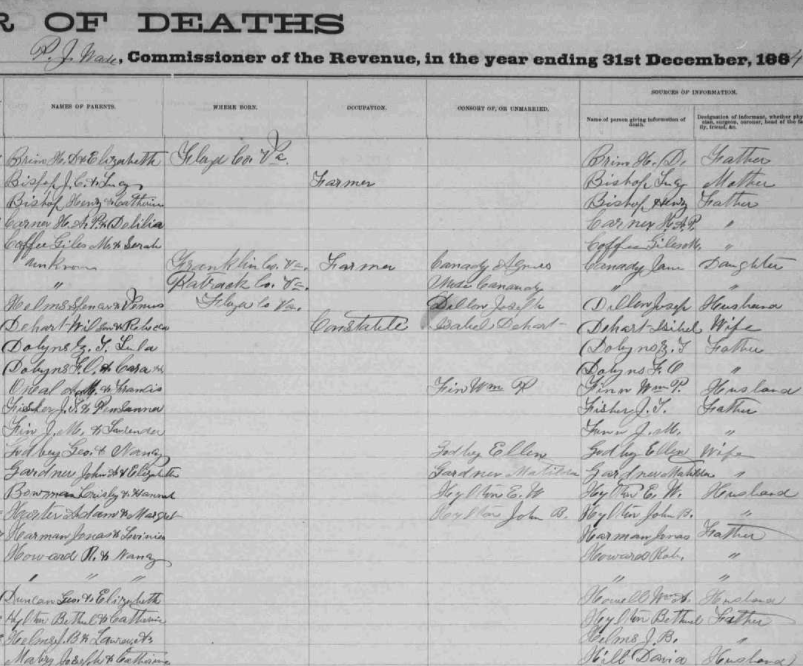 R OF DEATHS
P. J. Wade, Commissioner of the Revenue, in the year ending 31st December, 1884
SOURCES OF INFORMATION.
NAMES OF PARENTS. WHERE BORN. OCCUPATION. CONSORT OF, OR UNMARRIED. Name of person giving information of death. Designation of informant, whether phy- sian, surgeon, coroner, head of the fa- ly, friend, &c.
Brim H. D & Elizabeth Floyd Co. Va. Brim H. D. Father
Bishop J. C. & Lucy Farmer Bishop Lucy Mother
Bishop Henry & Catherine Bishop Henry Father
Carner H. A. P. & Delilia Carner H. A. P. "
Coffee Giles M. & Sarah Coffee Giles M. "
unknown Franklin Co. Va. Farmer Canady Agnes Canady Jane Daughter
" Patrick Co. Va. Canandy " "
Helms Spencer & Venus Floyd Co Va. Dillon Joseph Dillon Josep Husband
Dehart Constable Isabel Dehart Dehart Isibel Wife
Dobyns T. Lula Dobyns T Father
Dobyns F. O. & Cora Dobyns F. O "
Oneal & Francis Finn Wm P. Husband
Fisher J. T. & Fisher J. T. Father
Finn J. M. & Lavender Finn J. M. "
Godbey Geo. & Nancy Godby Ellen Godby Ellen Wife
Gardner John & Elizabeth Gardner Matilda Gardner Matilda "
Bowman & Hannah Hylton E. W Hylton E. W. Husband
Adam & Margret Hylton John B. Hylton John B. "
Harman Jonas & Harman Jonas Father
Howard R. & Nancy Howard Rob. "
" " " " "
Duncan Geo. & Elizabeth Howell Wm Husband
Hylton Bethel & Catherine Hylton Bethuel Father
Helms J. B & Helms J. B. "
Mabry Joseph & Catherine Hill David Husband